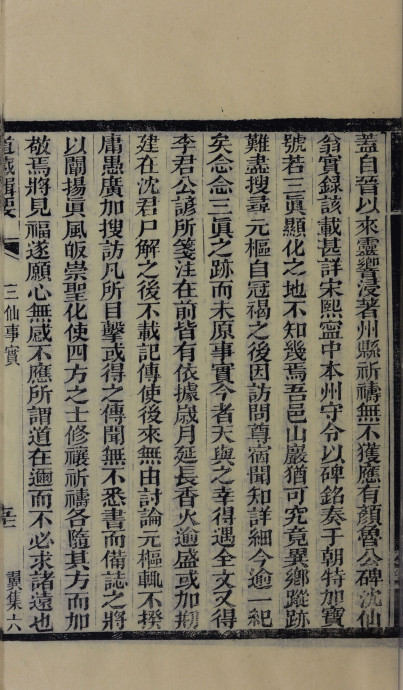 蓋自晉以來靈響浸著州縣祈禱無不獲應有顏魯公碑沈仙
翁實録該載甚詳宋熙寧中本州守令以碑銘奏于朝特加寶
號若三眞顯化之地不知幾焉吾邑山巖猶可究竟異鄉蹤跡
難盡搜尋元樞自冠褐之後因訪問尊宿聞知詳細今逾一紀
矣念念三眞之跡而未原事實今者天與之幸得遇全文又得
李君公諺所箋注在前皆有依據歲月延長香火逾盛或加剏
建在沈君尸解之後不載記傳使後來無由討論元樞輒不揆
庸愚廣加搜訪凡所目擊或得之傳聞無不悉書而備誌之將
以闡揚眞風皈崇聖化使四方之士修禳祈禱各隨其方而加
敬焉將見福遂願心無感不應所謂道在邇而不必求諸遠也
道藏輯要
三仙事實
翼集六